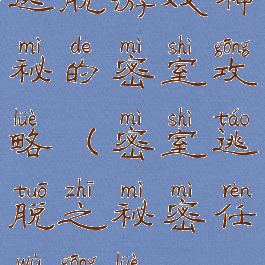 逃脱游戏神
mì de mì shì gōng
秘的密室攻
lüè mì shì táo
略（密室逃
tuō zhī mì mì rèn
脱之秘密任
wù gōng lüè